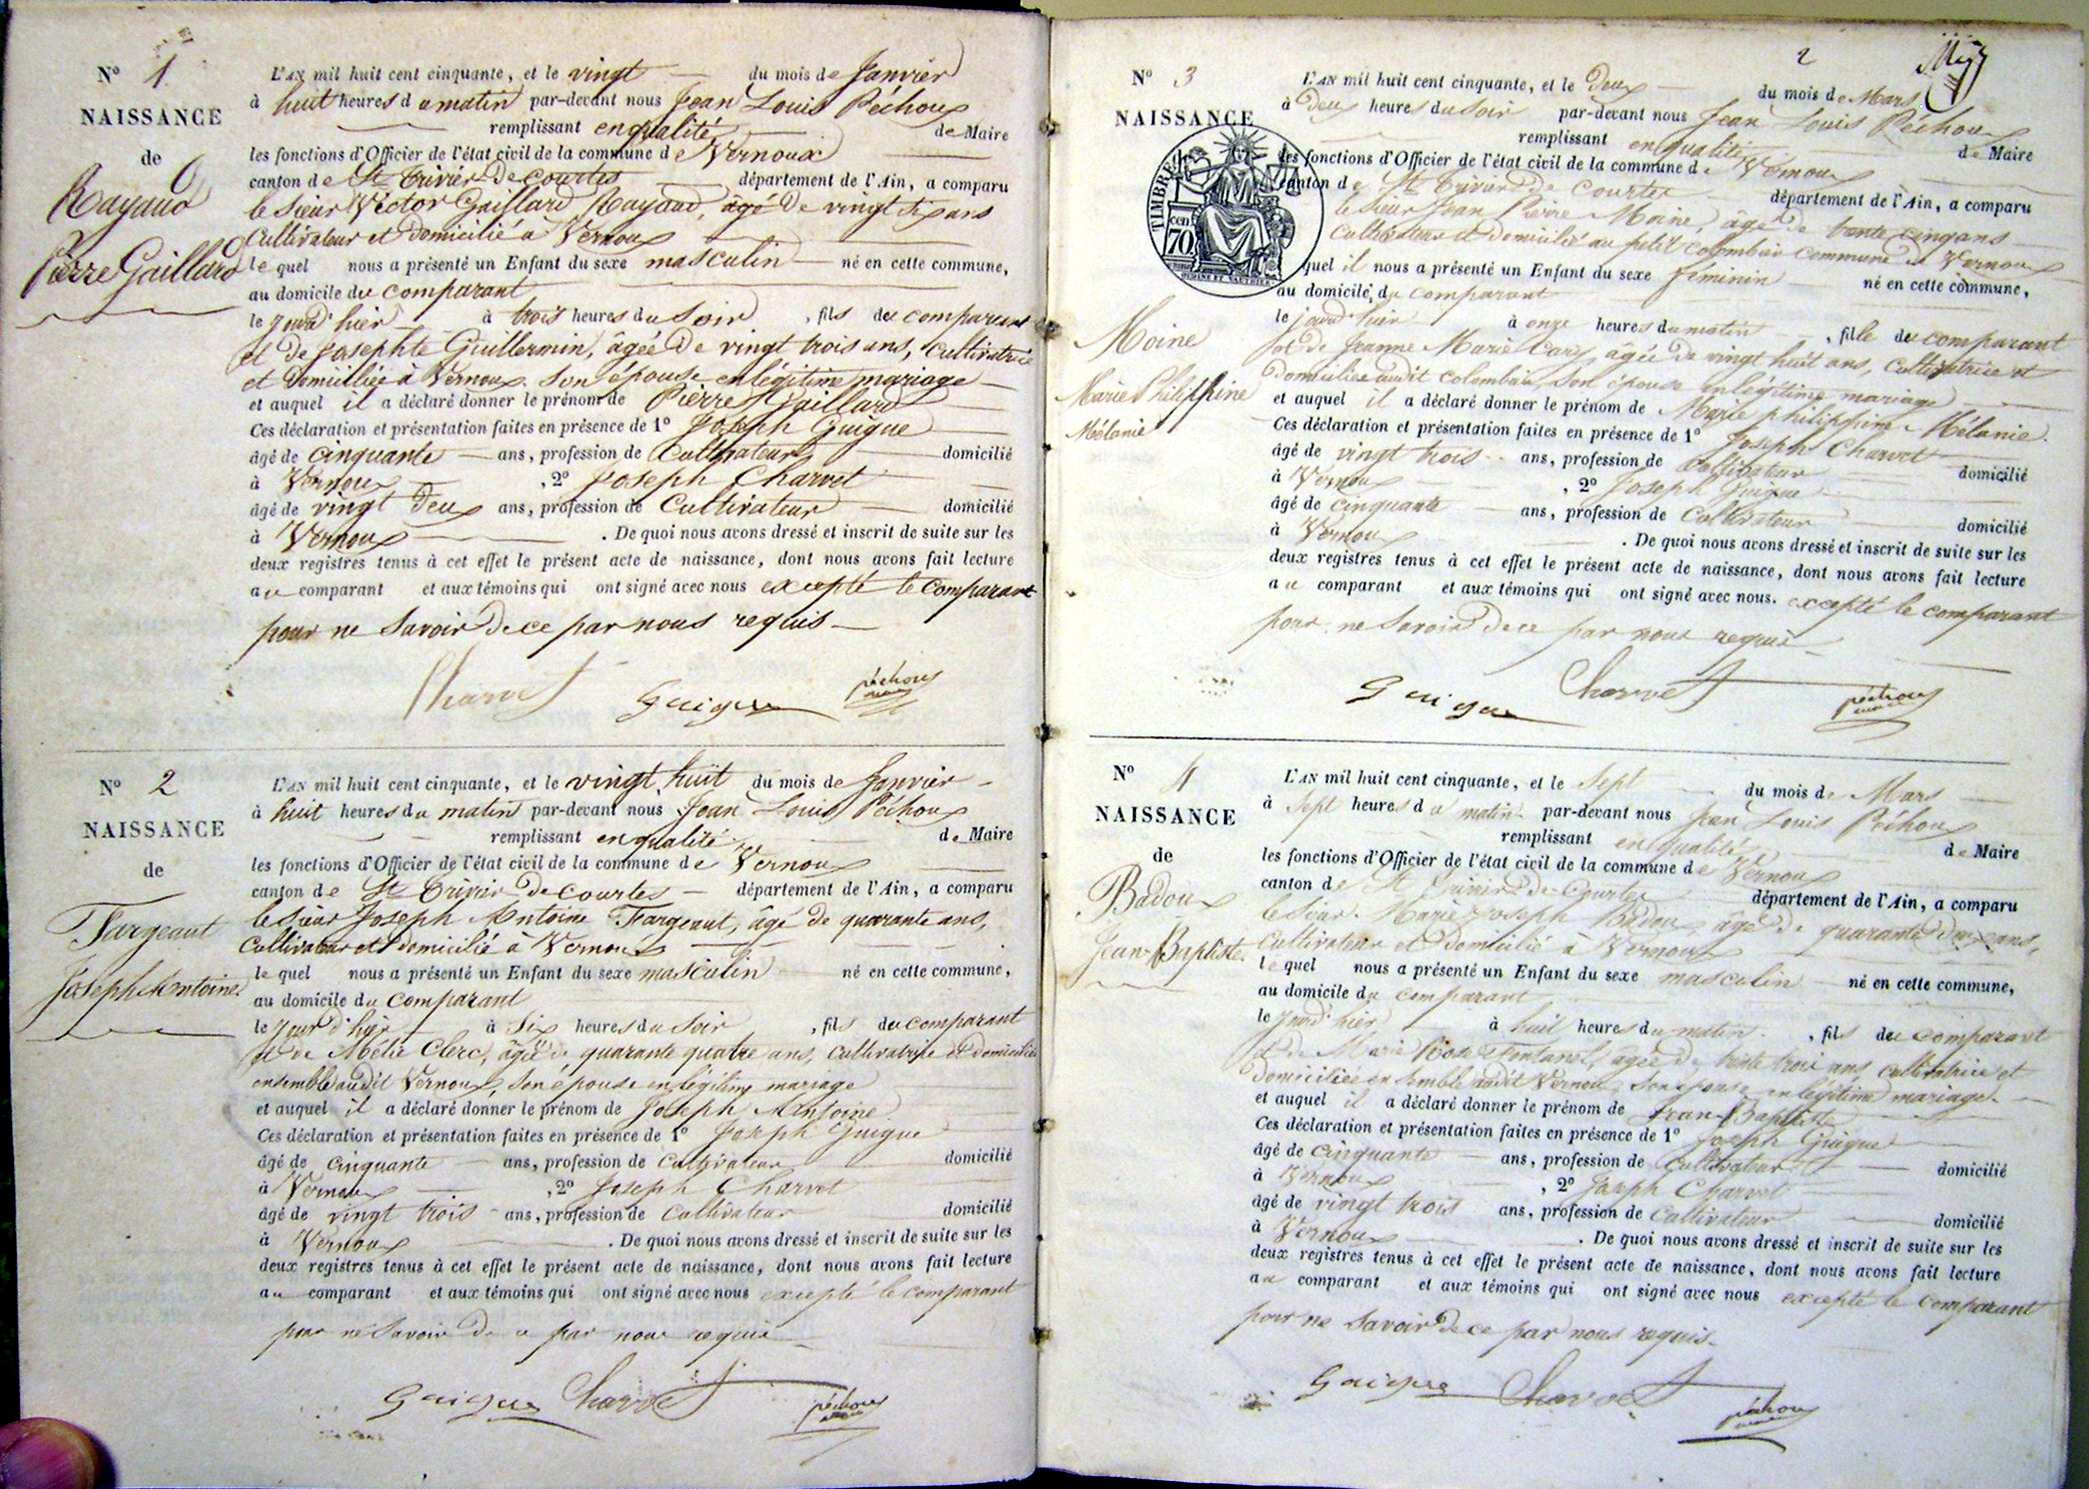 N° 1
NAISSANCE
de
Rayaud
Pierre Gaillard
L'AN mil huit cent cinquante, et le vingt du mois de Janvier
à huit heures du matin par-devant nous Jean Louis Péchoux
remplissant en qualité de Maire
les fonctions d'Officier de l'état civil de la commune de Vernoux
canton de St Trivier De courtes département de l'Ain, a comparu
le Sieur Victor Gaillard Rayaud, âgé De vingt six ans
Cultivateur et domicilié à Vernoux
le quel nous a présenté un Enfant du sexe masculin né en cette commune,
au domicile du comparant
le jourd'hier à trois heures du Soir, fils du comparant
et de Josephte Guillermin, âgée De vingt trois ans, cultivatrice
et domiciliée à Vernoux. Son épouse en légitime mariage
et auquel il a déclaré donner le prénom de Pierre Gaillard
Ces déclaration et présentation faites en présence de 1° Joseph Guigue
âgé de cinquante ans, profession de Cultivateur domicilié
à Vernoux, 2° Joseph Charvet
âgé de vingt Deux ans, profession de Cultivateur domicilié
à Vernoux. De quoi nous avons dressé et inscrit de suite sur les
deux registres tenus à cet effet le présent acte de naissance, dont nous avons fait lecture
au comparant et aux témoins qui ont signé avec nous excepté le comparant
pour ne Savoir De ce par nous requis
Charvet Guigue péchoux
N° 2
NAISSANCE
de
Fargeaut
Joseph Antoine.
L'AN mil huit cent cinquante, et le vingt huit du mois de Janvier
à huit heures du matin par-devant nous Jean Louis Péchoux
remplissant en qualité de Maire
les fonctions d'Officier de l'état civil de la commune de Vernoux
canton de St Trivier De courtes département de l'Ain, a comparu
le Sieur Joseph Antoine Fargeaut, âgé de quarante ans,
Cultivateur et domicilié à Vernoux
le quel nous a présenté un Enfant du sexe masculin né en cette commune,
au domicile du comparant
le jour d'hier à Six heures du Soir, fils du comparant
et de Mélie Clerc, âgée de quarante quatre ans, cultivatrice et domiciliés
ensemble audit Vernoux, Son épouse en légitime mariage
et auquel il a déclaré donner le prénom de Joseph Antoine.
Ces déclaration et présentation faites en présence de 1° Joseph Guigue
âgé de cinquante ans, profession de Cultivateur domicilié
à Vernoux, 2° Joseph Charvet
âgé de vingt trois ans, profession de Cultivateur domicilié
à Vernoux. De quoi nous avons dressé et inscrit de suite sur les
deux registres tenus à cet effet le présent acte de naissance, dont nous avons fait lecture
au comparant et aux témoins qui ont signé avec nous excepté le comparant
pour ne Savoir De ce par nous requis
Guigue Charvet péchoux
2
N° 3
NAISSANCE
TIMBRE
cen 70
Moine
Marie Philippine
Mélanie
L'AN mil huit cent cinquante, et le Deux du mois de Mars
à Deux heures du soir par-devant nous Jean Louis Péchoux
remplissant en qualité de Maire
les fonctions d'Officier de l'état civil de la commune de Vernoux
canton de St Trivier De courtes département de l'Ain, a comparu
le Sieur Jean Pierre Moine, âgé de trente cinq ans
Cultivateur et domicilié au petit Colombier commune de Vernoux
quel il nous a présenté un Enfant du sexe féminin né en cette commune,
au domicile du comparant
le jourd'hier à onze heures du matin, fille du comparant
et de Jeanne Marie âgée De vingt huit ans, Cultivatrice et
Domiciliée audit colombier, Son épouse en légitime mariage
et auquel il a déclaré donner le prénom de Marie philippine Mélanie.
Ces déclaration et présentation faites en présence de 1° Joseph Charvet
âgé de vingt trois ans, profession de Cultivateur domicilié
à Vernoux, 2° Joseph Guigue
âgé de cinquante ans, profession de Cultivateur domicilié
à Vernoux. De quoi nous avons dressé et inscrit de suite sur les
deux registres tenus à cet effet le présent acte de naissance, dont nous avons fait lecture
au comparant et aux témoins qui ont signé avec nous. excepté le comparant
pour ne Savoir De ce par nous requis
Guigue Charvet péchoux
N° 4
NAISSANCE
de
Badoux
Jean-Baptiste.
L'AN mil huit cent cinquante, et le Sept du mois de Mars
à Sept heures du matin par-devant nous Jean Louis Péchoux
remplissant en qualité de Maire
les fonctions d'Officier de l'état civil de la commune de Vernoux
canton de St Trivier De Courtes département de l'Ain, a comparu
le Sieur Marie Joseph Badoux, âgé De quarante deux ans,
Cultivateur et Domicilié à Vernoux
le quel nous a présenté un Enfant du sexe masculin né en cette commune,
au domicile du comparant
le jourd'hier à huit heures du matin, fils du comparant
et de Marie Rose Fontanel, âgée De trente trois ans cultivatrice et
Domiciliée ensemble audit Vernoux Son épouse en légitime mariage.
et auquel il a déclaré donner le prénom de Jean-Baptiste
Ces déclaration et présentation faites en présence de 1° Joseph Guigue
âgé de cinquante ans, profession de Cultivateur domicilié
à Vernoux, 2° Joseph Charvet
âgé de vingt trois ans, profession de Cultivateur domicilié
à Vernoux. De quoi nous avons dressé et inscrit de suite sur les
deux registres tenus à cet effet le présent acte de naissance, dont nous avons fait lecture
au comparant et aux témoins qui ont signé avec nous excepté le comparant
pour ne Savoir De ce par nous requis.
Guigue Charvet péchoux